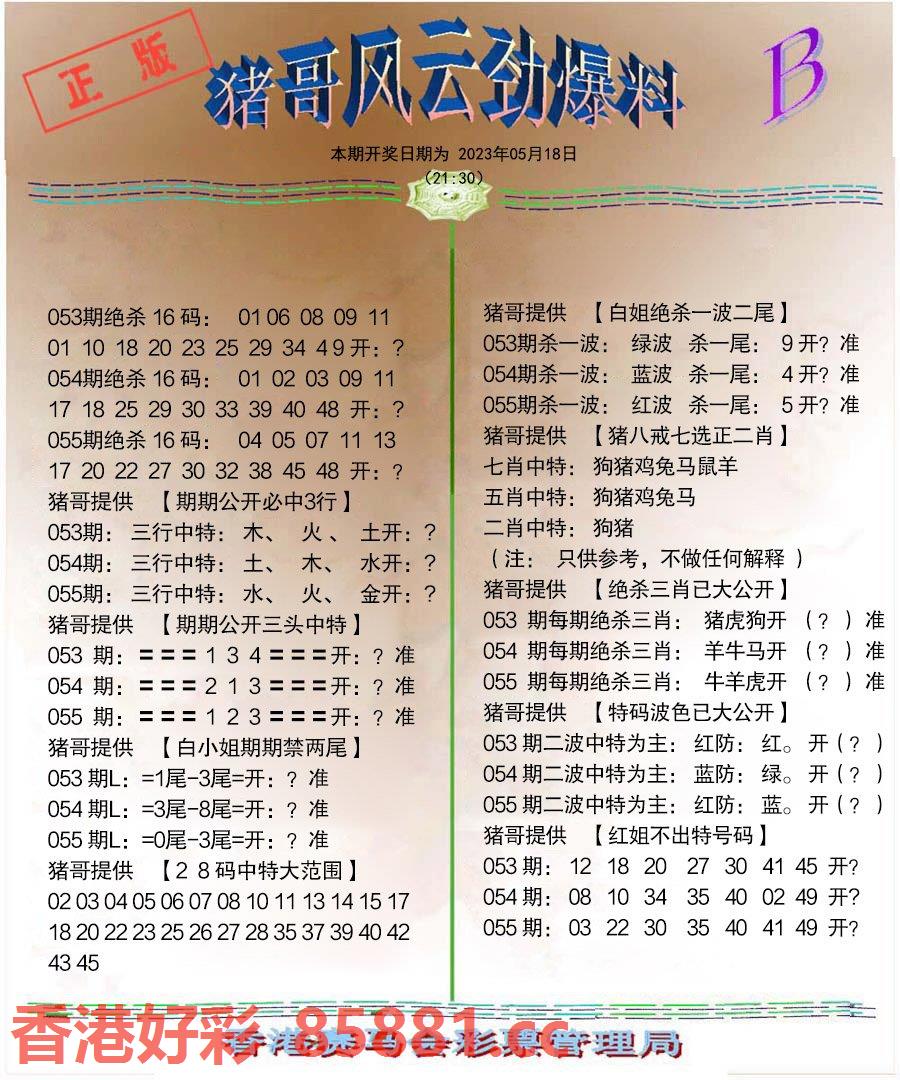 正版
猪哥风云劲爆料
B
本期开奖日期为 2023年05月18日
（21:30）
053期绝杀 16 码： 01 06 08 09 11
01 10 18 20 23 25 29 34 4 9 开：?
054期绝杀 16 码： 01 02 03 09 11
17 18 25 29 30 33 39 40 48 开：?
055期绝杀 16 码： 04 05 07 11 13
17 20 22 27 30 32 38 45 48 开：?
猪哥提供 【期期公开必中3行】
053期： 三行中特： 木、 火、 土开：?
054期： 三行中特： 土、 木、 水开：?
055期： 三行中特： 水、 火、 金开：?
猪哥提供 【期期公开三头中特】
053 期：＝＝＝１３４＝＝＝开：? 准
054 期：＝＝＝２１３＝＝＝开：? 准
055 期：＝＝＝１２３＝＝＝开：? 准
猪哥提供 【白小姐期期禁两尾】
053 期L：=1尾-3尾=开：? 准
054 期L：=3尾-8尾=开：? 准
055 期L：=0尾-3尾=开：? 准
猪哥提供 【２８码中特大范围】
02 03 04 05 06 07 08 10 11 13 14 15 17
18 20 22 23 25 26 27 28 35 37 39 40 42
43 45
猪哥提供 【白姐绝杀一波二尾】
053期杀一波： 绿波 杀一尾： 9 开? 准
054期杀一波： 蓝波 杀一尾： 4 开? 准
055期杀一波： 红波 杀一尾： 5 开? 准
猪哥提供 【猪八戒七选正二肖】
七肖中特： 狗猪鸡兔马鼠羊
五肖中特： 狗猪鸡兔马
二肖中特： 狗猪
（注： 只供参考，不做任何解释 ）
猪哥提供 【绝杀三肖已大公开】
053 期每期绝杀三肖： 猪虎狗开 （? ）准
054 期每期绝杀三肖： 羊牛马开 （? ）准
055 期每期绝杀三肖： 牛羊虎开 （? ）准
猪哥提供 【特码波色已大公开】
053 期二波中特为主： 红防： 红。 开（? ）
054 期二波中特为主： 蓝防： 绿。 开（? ）
055 期二波中特为主： 红防： 蓝。 开（? ）
猪哥提供 【红姐不出特号码】
053 期： 12 18 20 27 30 41 45 开?
054 期： 08 10 34 35 40 02 49 开?
055 期： 03 22 30 35 40 41 49 开?
香港好彩 85881.cc
香港赛马会彩票管理局